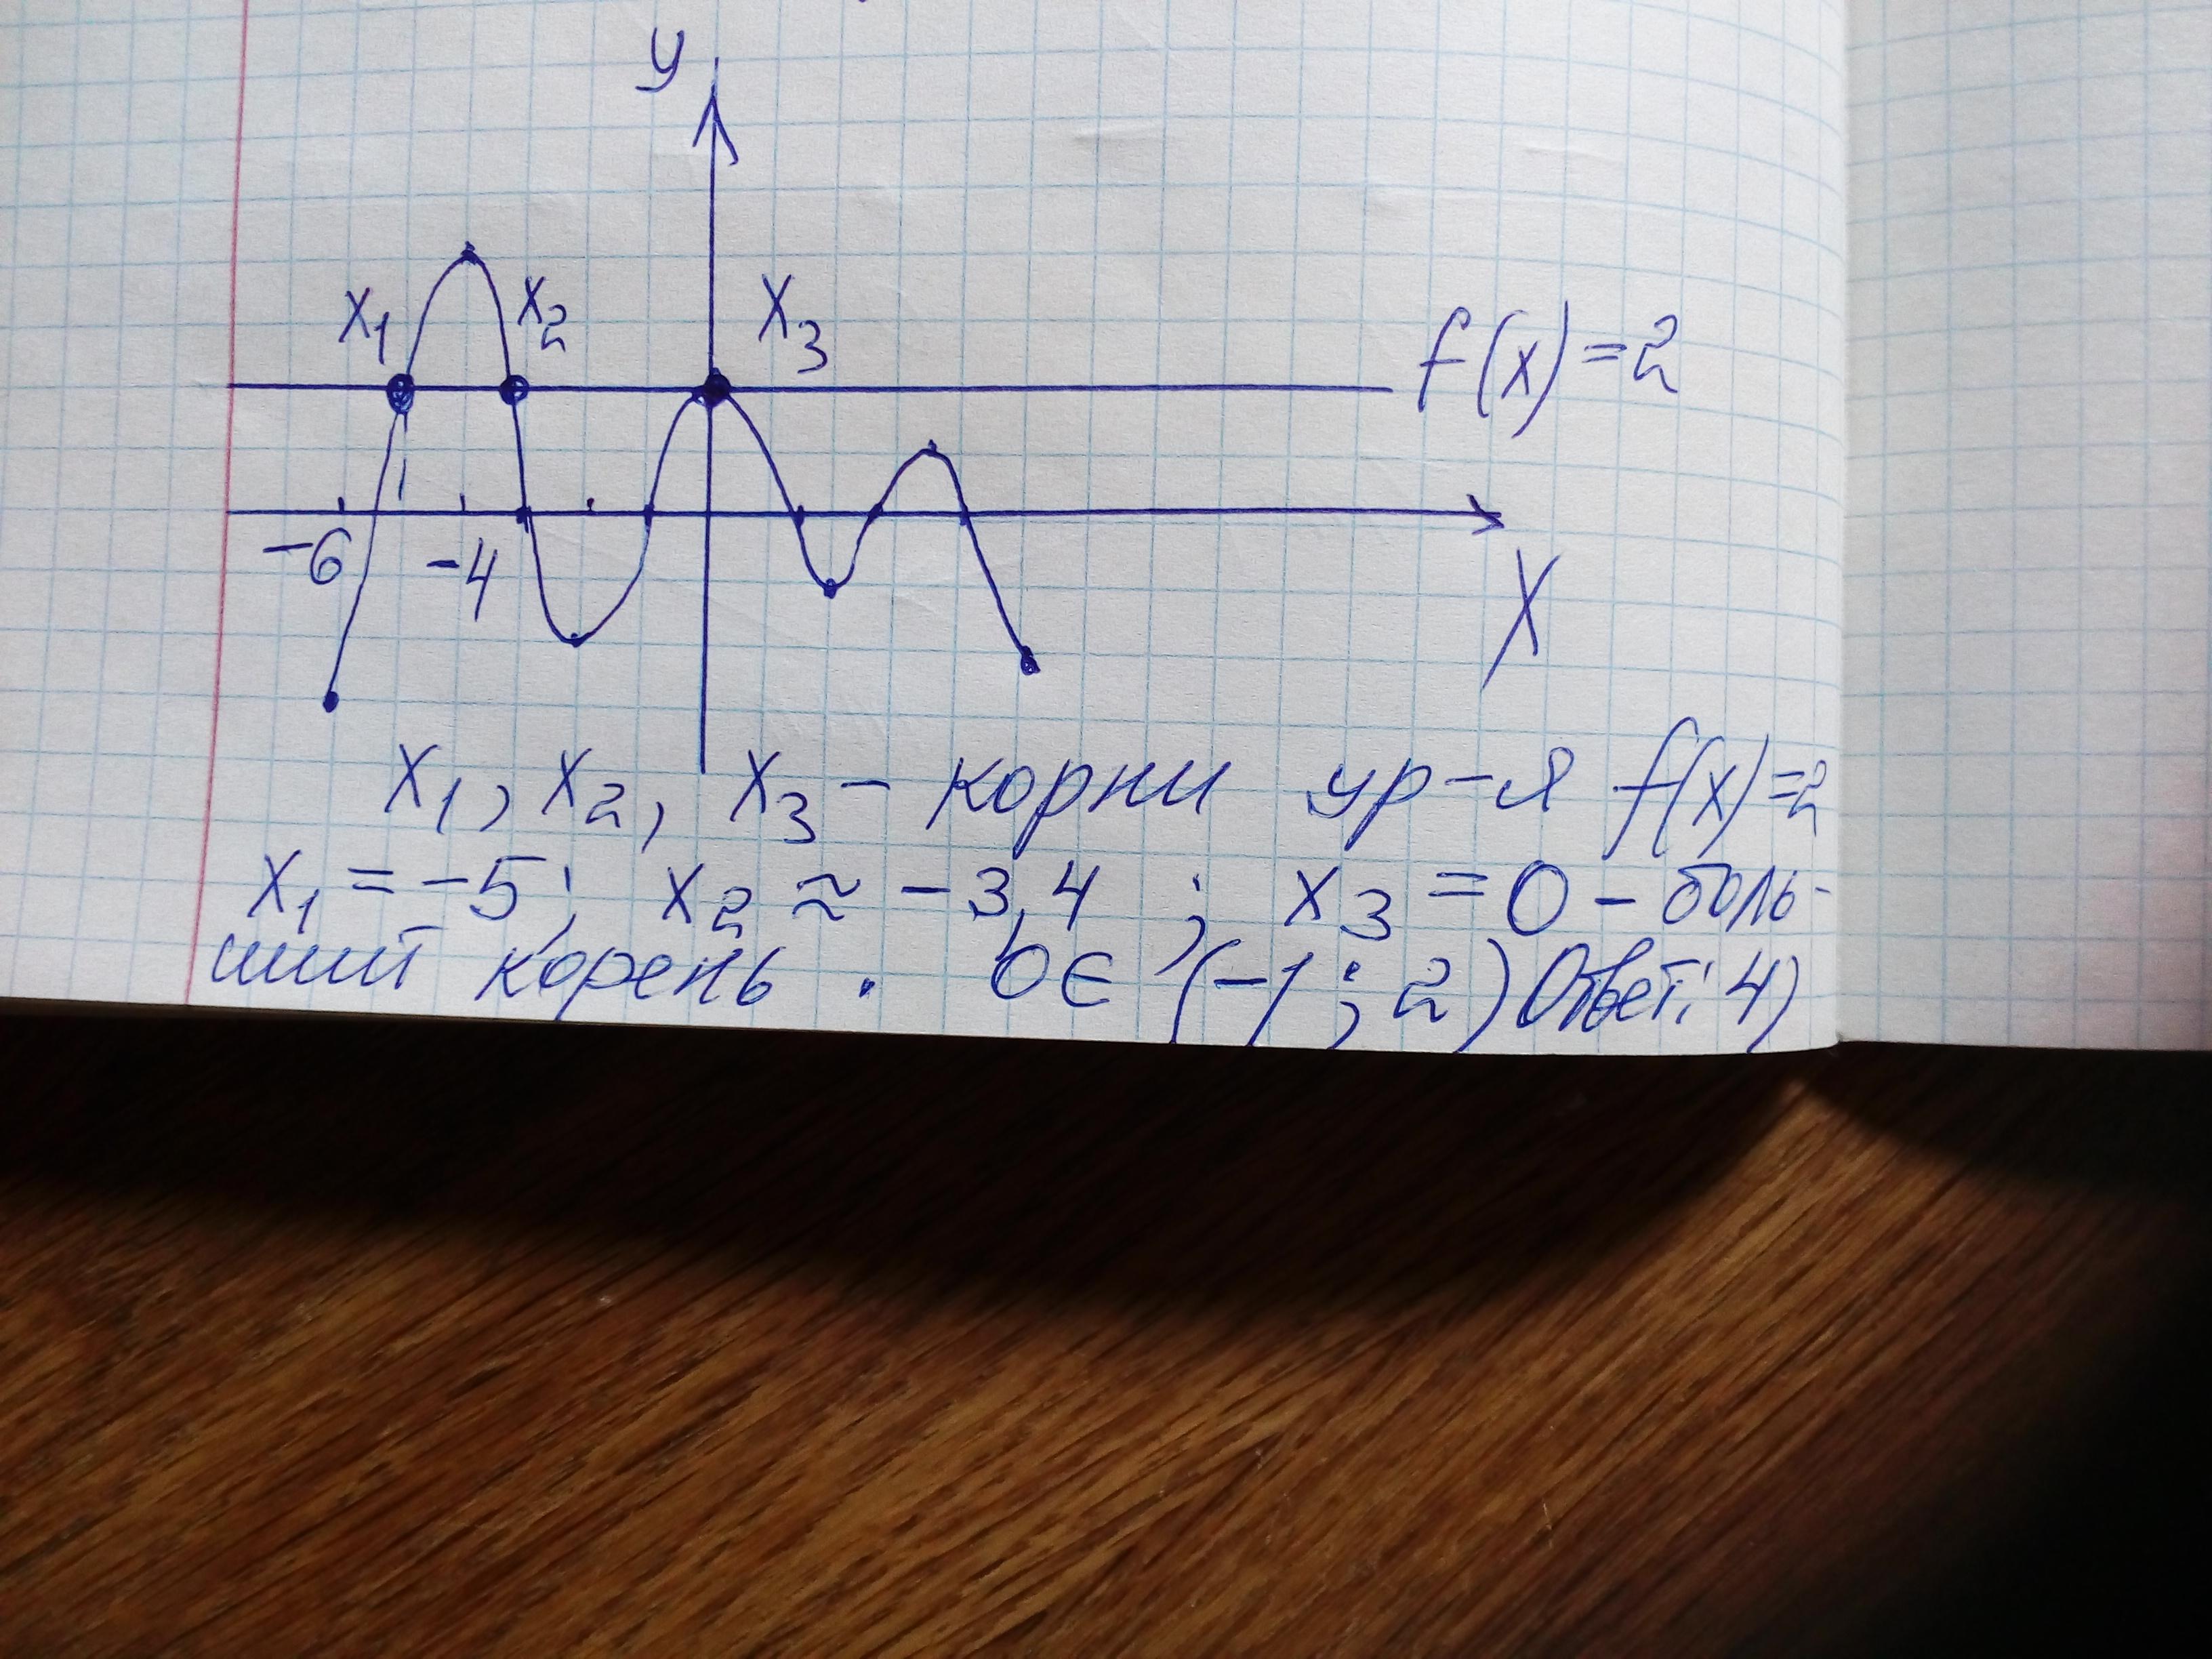 y
x₁ x₂ x₃
f(x)=2
-6 -4
X
x₁, x₂, x₃ - корни ур-я f(x)=2
x₁ = -5; x₂ ≈ -3,4 ; x₃ = 0 - боль-
ший корень . b ∈ (-1; 2) Ответ: 4)